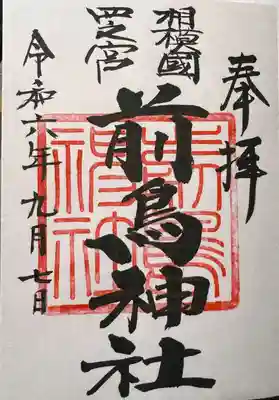 奉拝
相模國
四之宮
前鳥神社
令和六年九月七日
前鳥神社